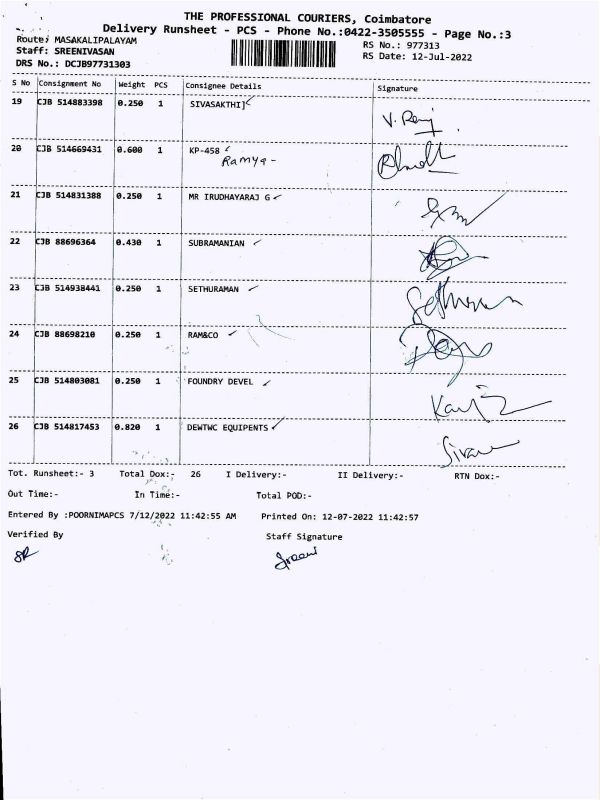 THE PROFESSIONAL COURIERS, Coimbatore
Delivery Runsheet - PCS - Phone No.:0422-3505555 - Page No.:3
Route: MASAKALIPALAYAM RS No.: 977313
Staff: SREENIVASAN RS Date: 12-Jul-2022
DRS No.: DCJB97731303
S No Consignment No Weight PCS Consignee Details Signature
19 CJB 514883398 0.250 1 SIVASAKTHI]
V. Renj
20 CJB 514669431 0.600 1 KP-458
Ramya -
21 CJB 514831388 0.250 1 MR IRUDHAYARAJ G
22 CJB 88696364 0.430 1 SUBRAMANIAN
23 CJB 514938441 0.250 1 SETHURAMAN
Sethuraman
24 CJB 88698210 0.250 1 RAM&CO
25 CJB 514803081 0.250 1 FOUNDRY DEVEL
26 CJB 514817453 0.820 1 DEWTWC EQUIPENTS
Tot. Runsheet:- 3 Total Dox:- 26 I Delivery:- II Delivery:- RTN Dox:-
Out Time:- In Time:- Total POD:-
Entered By :POORNIMAPCS 7/12/2022 11:42:55 AM Printed On: 12-07-2022 11:42:57
Verified By Staff Signature
SR Sreeni